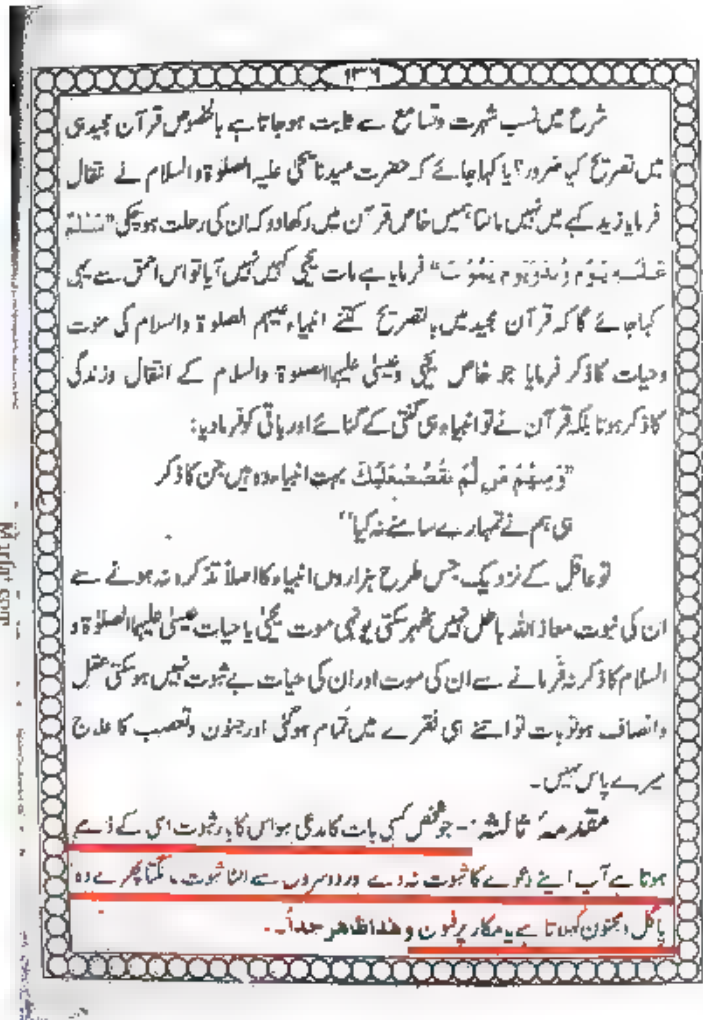 ۱۳۶
شرع میں نسب شہرت وتسامع سے ثابت ہوجاتا ہے بالخصوص قرآن مجید ہی
میں تصریح کیا ضرور؟ یا کہا جائے کہ حضرت سیدنا یحییٰ علیہ الصلوٰۃ والسلام نے انتقال
فرمایا زید کہے میں نہیں مانتا ہمیں خاص قرآن میں دکھا دو کہ ان کی رحلت ہوچکی "سَلٰمٌ
عَلَیْہِ یَوْمَ وُلِدَ وَیَوْمَ یَمُوْتُ" فرمایا ہے مات یحییٰ کہیں نہیں آیا تو اس احمق سے یہی
کہا جائے گا کہ قرآن مجید میں بالتصریح کتنے انبیاء علیہم الصلوۃ والسلام کی موت
وحیات کا ذکر فرمایا جو خاص یحییٰ وعیسیٰ علیہما الصلوۃ والسلام کے انتقال وزندگی
کا ذکر ہوتا بلکہ قرآن نے تو انبیاء ہی گنتی کے گنائے اور باقی کو فرمادیا:
"وَمِنْہُمْ مَنْ لَمْ نَقْصُصْ عَلَیْكَ بہت انبیاء وہ ہیں جن کا ذکر
ہی ہم نے تمہارے سامنے نہ کیا"
تو عاقل کے نزدیک جس طرح ہزاروں انبیاء کا اصلاً تذکرہ نہ ہونے سے
ان کی نبوت معاذ اللہ باطل نہیں ٹھہر سکتی یونہی موت یحییٰ یا حیات عیسیٰ علیہما الصلوٰۃ و
السلام کا ذکر نہ فرمانے سے ان کی موت اور ان کی حیات بے ثبوت نہیں ہوسکتی عقل
وانصاف ہو تو بات تو اتنے ہی فقرے میں تمام ہوگئی اور جنون وتعصب کا علاج
میرے پاس نہیں۔
مقدمۂ ثالثہ:- جو شخص کسی بات کا مدعی ہو اس کا بار ثبوت اسی کے ذمے
ہوتا ہے آپ اپنے دعوے کا ثبوت نہ دے اور دوسروں سے الٹا ثبوت مانگتا پھرے وہ
پاگل ومجنون کہلاتا ہے یا مکار پرفنون وهذا ظاهر جداً۔
Marfat.com